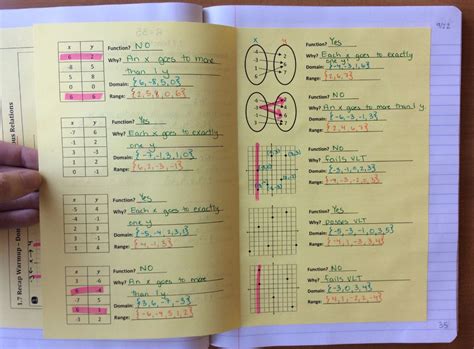 x y
6 2
-8 5
5 8
0 0
6 6
Function? NO
Why? An x goes to more
than 1 y
Domain: {6,-8,5,0}
Range: {2,5,8,0,6}
x y
-7 6
-1 2
1 -3
3 2
0 -1
Function? Yes
Why? Each x goes to exactly
one y
Domain: {-7,-1,3,1,0}
Range: {6,2,-3,-1}
x y
-5 4
-4 -1
2 4
3 -1
1 4
Function? Yes
Why? Each x goes to exactly
one y
Domain:
Range: {4,-1,3}
x y
3 -6
6 -4
-7 5
6 1
-3 2
Function? NO
Why? An x goes to more
than 1 y
Domain: {3,6,-7,-3}
Range: {-6,-4,5,1,2}
x y
Function? Yes
Why? Each x goes to exactly
one y!
Domain:
Range: {2,6,7}
Function? NO
Why? An x goes to more than 1 y
Domain: {-6,-3,-1,3}
Range: {2,4,6,7}
Function? NO
Why? fails VLT
Domain:
Range:
Function? Yes
Why? passes VLT
Domain: {-5,-3,-1,0,3,5}
Range:
Function? NO
Why? fails VLT
Domain: {-3,0,3,4}
Range: {4,1,-2,2,-4}
35
1.7 Recap Warmup - Dom
us Relations